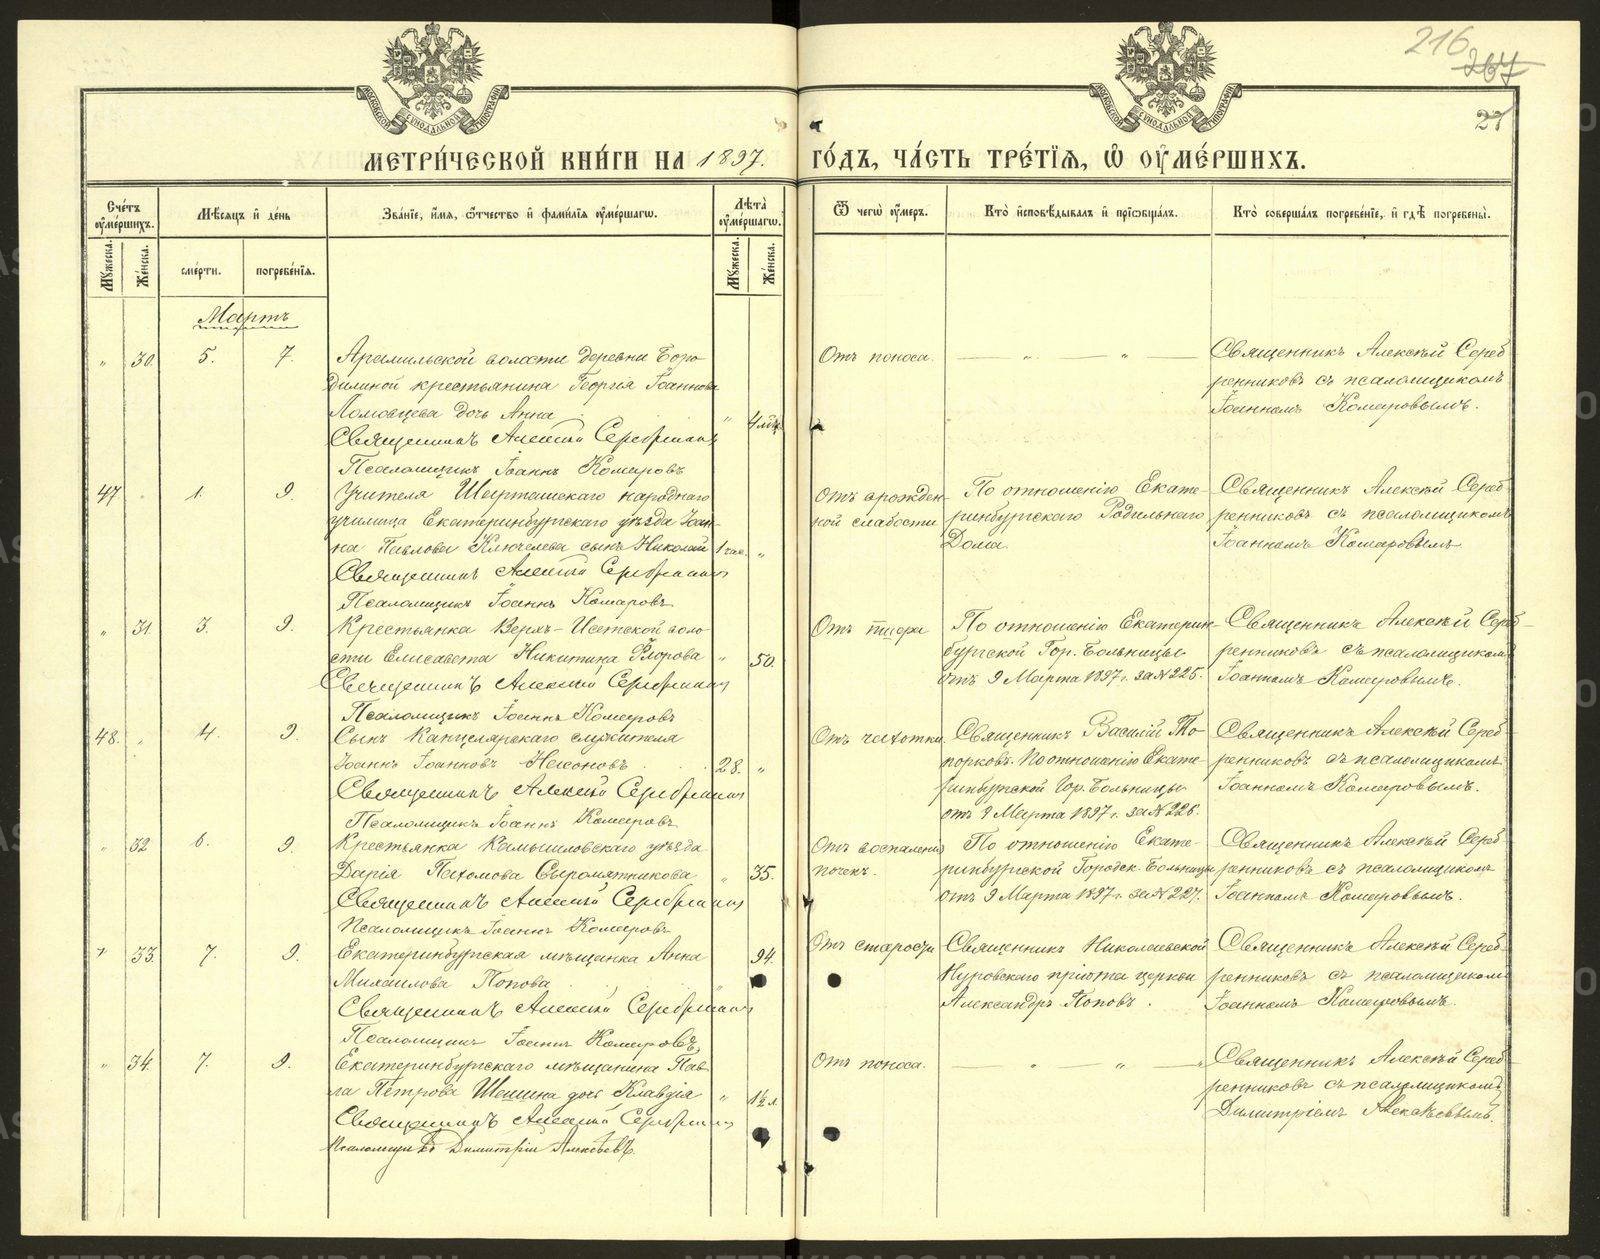 216
267
27
МЕТРИ́ЧЕСКОЙ КНИ́ГИ НА 1897.
ГО́ДЪ, ЧА́СТЬ ТРЕ́ТЇѦ, Ѡ҆ ОУ҆МЕ́РШИХЪ.
Сче́тъ оу҆ме́ршихъ.
Мѣ́сѧцъ и҆ де́нь
Зва́нїе, и҆́мѧ, ѻ҆́тчество и҆ фами́лїѧ оу҆ме́ршагѡ.
Лѣ́та оу҆ме́ршагѡ.
Ѿ чегѡ̀ оу҆́меръ.
Кто̀ и҆сповѣ́дывалъ и҆ прїѡбща́лъ.
Кто̀ соверша́лъ погребе́нїе, и҆ гдѣ̀ погребены̀.
Мꙋ́жеска.
Же́нска.
сме́рти.
погребе́нїѧ.
Мꙋ́жеска.
Же́нска.
Мартъ
" 30. 5. 7.
Арамильской волости деревни Боро-
дулиной крестьянина Георгія Іоаннова
Ломовцева дочь Анна
" 4 мѣс.
Священникъ Алексѣй Серебренниковъ
Псаломщикъ Іоаннъ Комаровъ
Отъ поноса.
Священникъ Алексѣй Сереб-
ренниковъ съ псаломщикомъ
Іоанномъ Комаровымъ.
47 " 1. 9.
Учителя народнаго
училища Екатеринбургскаго уѣзда Іоан-
на Павлова Ключелева сынъ Николай
1 час. "
Священникъ Алексѣй Серебренниковъ
Псаломщикъ Іоаннъ Комаровъ
Отъ врожден-
ной слабости
По отношенію Екате-
ринбургскаго Родильнаго
Дома.
Священникъ Алексѣй Сереб-
ренниковъ съ псаломщикомъ
Іоанномъ Комаровымъ
" 31. 3. 9.
Крестьянка Верхъ-Исетской воло-
сти Елисавета Никитина Флорова
" 50.
Священникъ Алексѣй Серебренниковъ
Псаломщикъ Іоаннъ Комаровъ
Отъ
По отношенію Екатерин-
бургской Гор. Больницы
отъ 9 Марта 1897 г. за № 225.
Священникъ Алексѣй Сереб-
ренниковъ съ псаломщикомъ
Іоанномъ Комаровымъ.
48. " 4. 9.
Сынъ Канцелярскаго служителя
Іоаннъ Іоанновъ
28. "
Священникъ Алексѣй Серебренниковъ
Псаломщикъ Іоаннъ Комаровъ
Отъ чахотки.
Священникъ Василій То-
порковъ. По отношенію Екате-
ринбургской Гор. Больницы
отъ 9 Марта 1897 г. за № 226.
Священникъ Алексѣй Сереб-
ренниковъ съ псаломщикомъ
Іоанномъ Комаровымъ.
" 32 6. 9.
Крестьянка Камышловскаго уѣзда
Дарія Пахомова Сыромятникова
" 35.
Священникъ Алексѣй Серебренниковъ
Псаломщикъ Іоаннъ Комаровъ
Отъ воспаленія
почекъ.
По отношенію Екате-
ринбургской Городск. Больницы
отъ 9 Марта 1897 г. за № 227.
Священникъ Алексѣй Сереб-
ренниковъ съ псаломщикомъ
Іоанномъ Комаровымъ.
" 33. 7. 9.
Екатеринбургская мѣщанка Анна
Михаилова Попова
94.
Священникъ Алексѣй Серебренниковъ
Псаломщикъ Іоаннъ Комаровъ.
Отъ старости
Священникъ Николаевской
Нуровскаго пріюта церкви
Александръ Поповъ.
Священникъ Алексѣй Сереб-
ренниковъ съ псаломщикомъ
Іоанномъ Комаровымъ.
" 34. 7. 9.
Екатеринбургскаго мѣщанина Пав-
ла Петрова Шешина дочь Клавдія
" 1½ л.
Священникъ Алексѣй Серебренниковъ
Псаломщикъ Димитрій Алексѣевъ.
Отъ поноса.
Священникъ Алексѣй Сереб-
ренниковъ съ псаломщикомъ
Димитріемъ Алексѣевымъ.